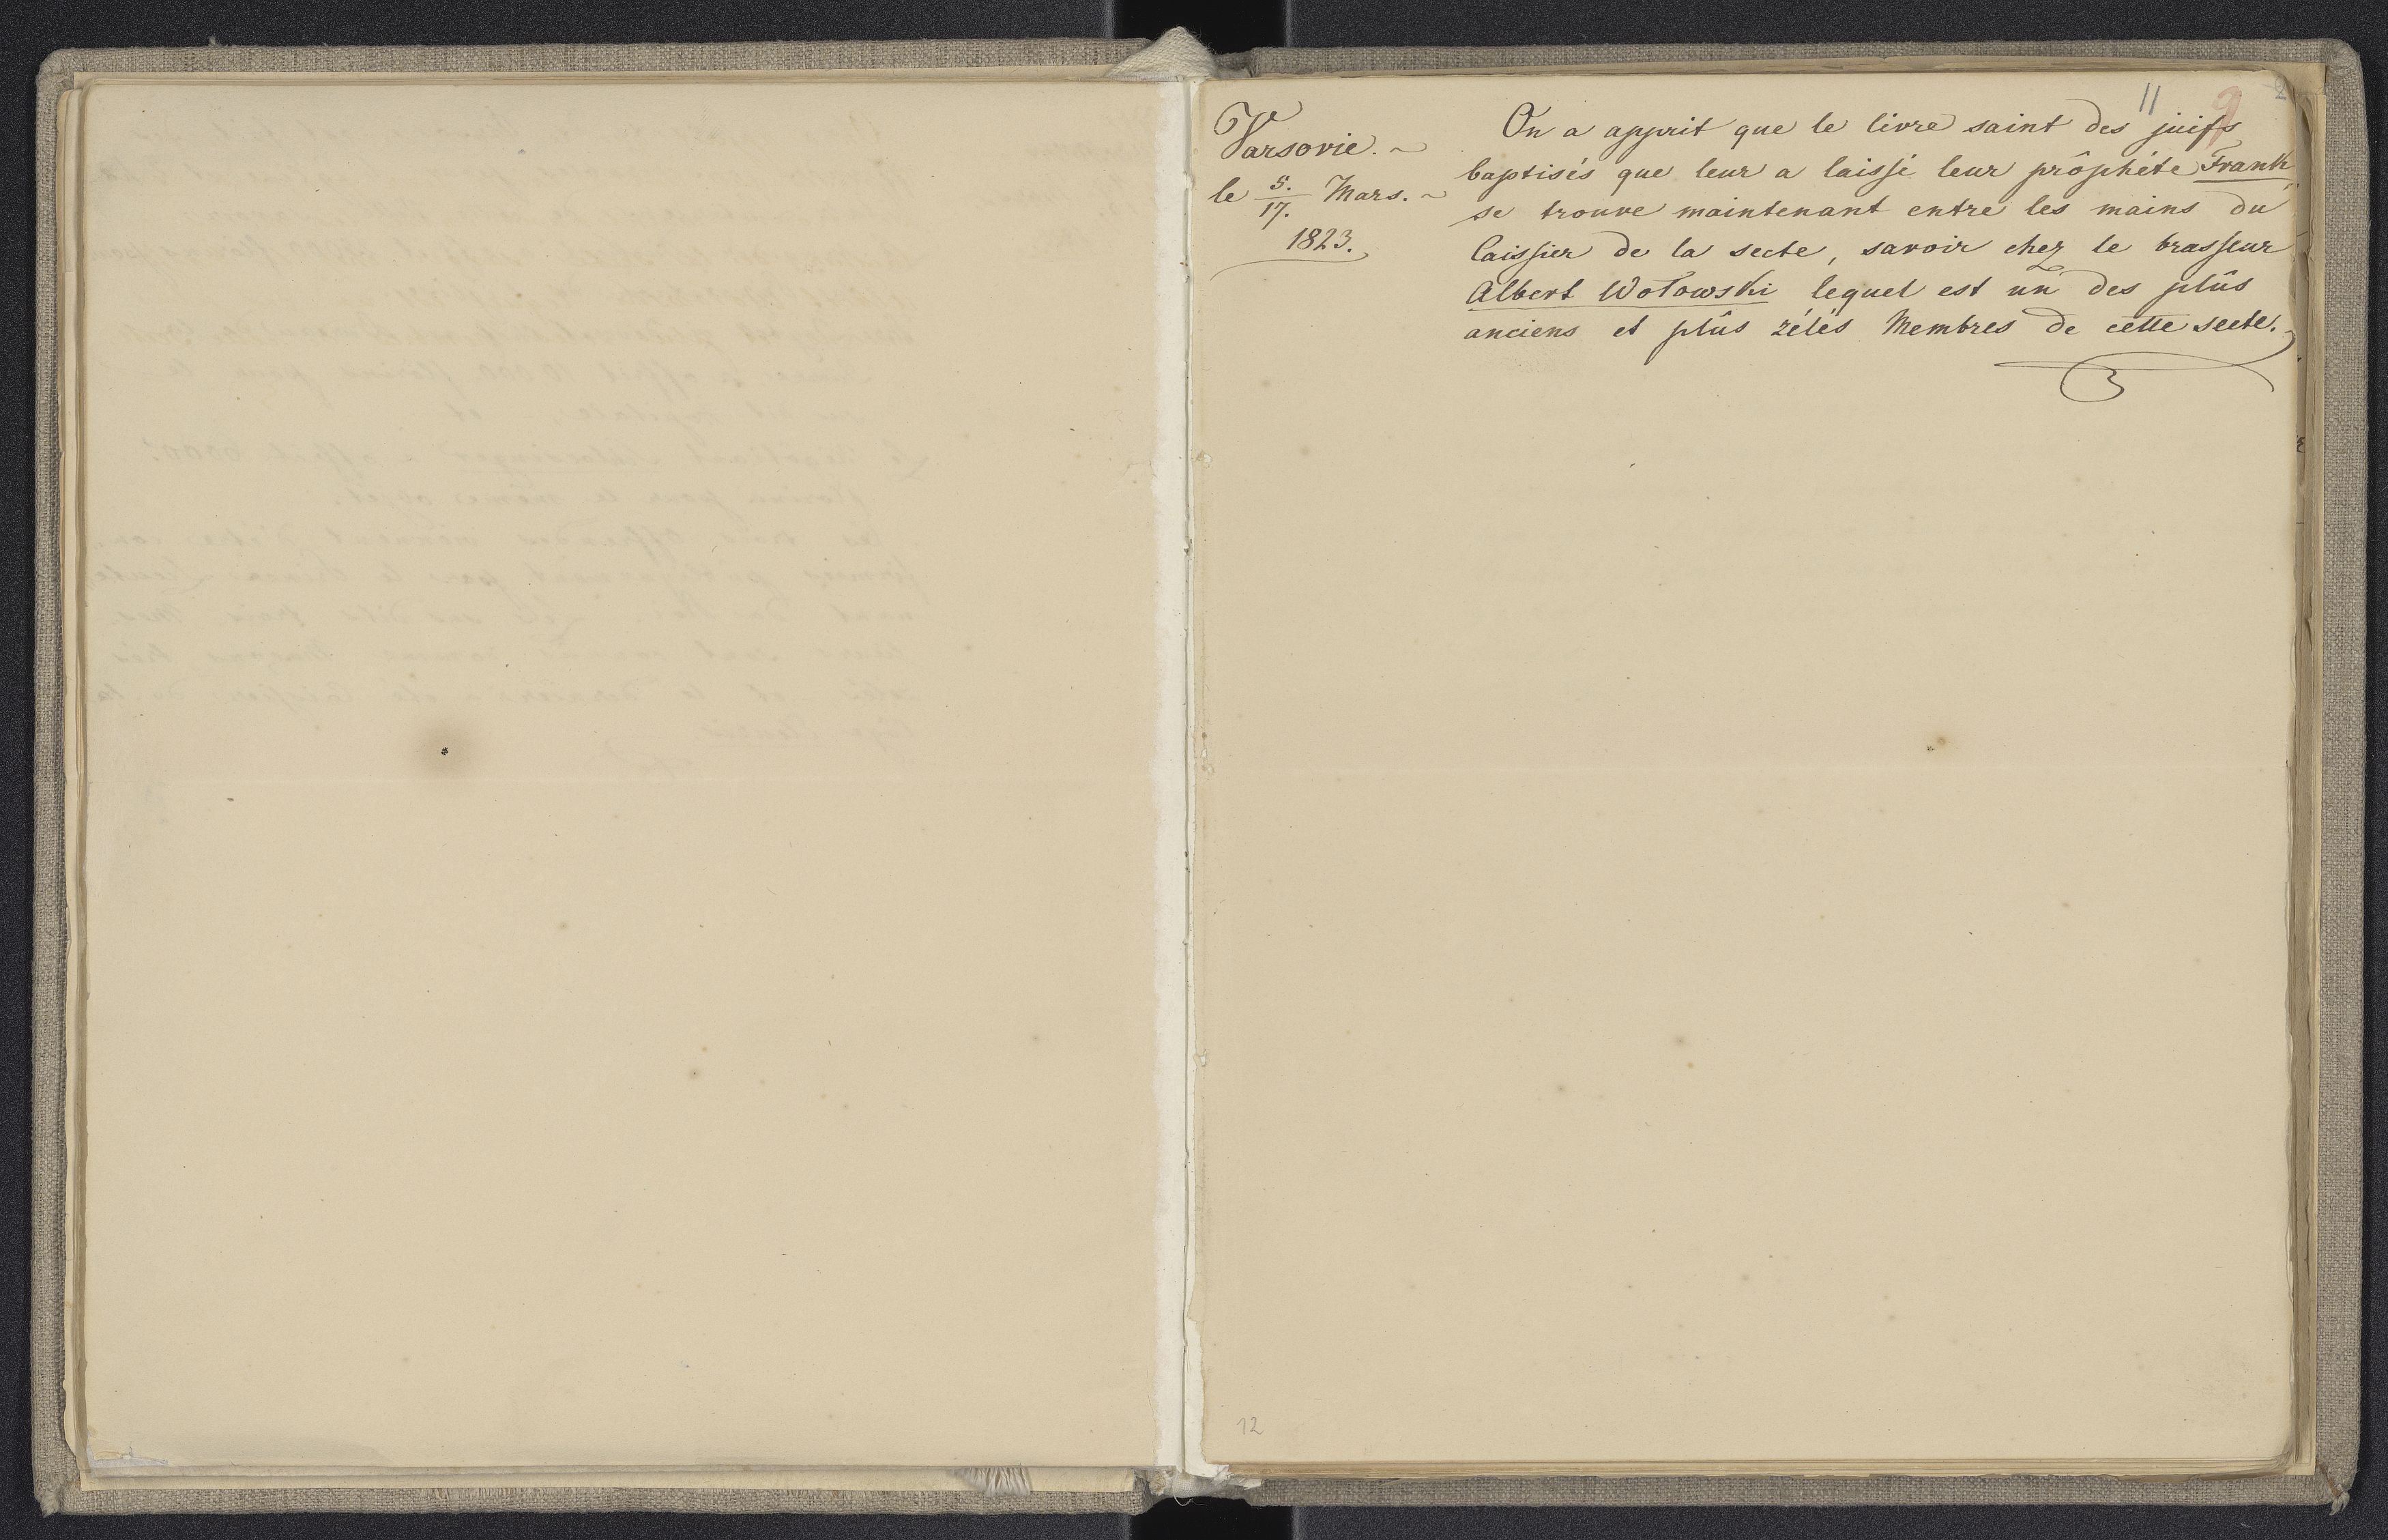 11
9
2
Varsovie. ~
le 5./17. Mars. ~
1823.
On a apprit que le livre saint des juifs
baptisés que leur a laissé leur prôphéte Frank,
se trouve maintenant entre les mains du
Caissier de la secte, savoir chez le brasseur
Albert Wołowski lequel est un des plûs
anciens et plûs zélés Membres de cette secte.
12